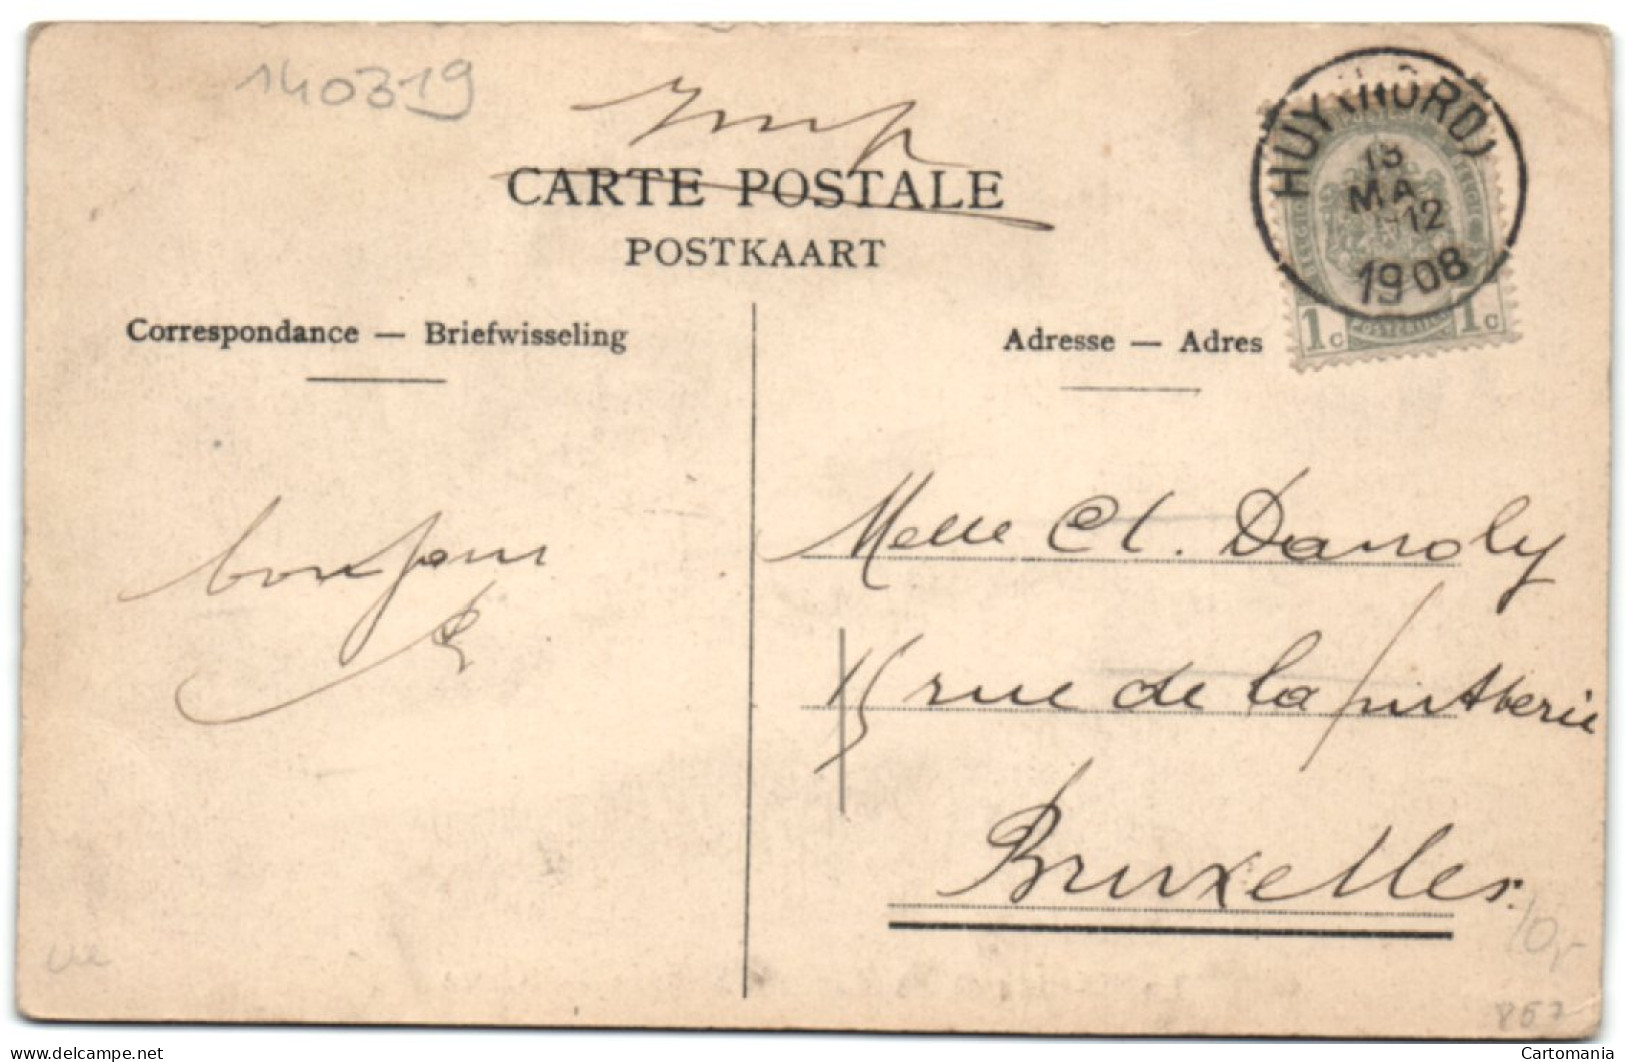 140319
Imp
CARTE POSTALE
POSTKAART
HUY (NORD)
13
MA
12
1908
1c 1c
Correspondance — Briefwisseling
Adresse — Adres
bonjour
Melle Cl. Dandoly
15 rue de la putterie
Bruxelles
10,-
857
www.delcampe.net
Cartomania